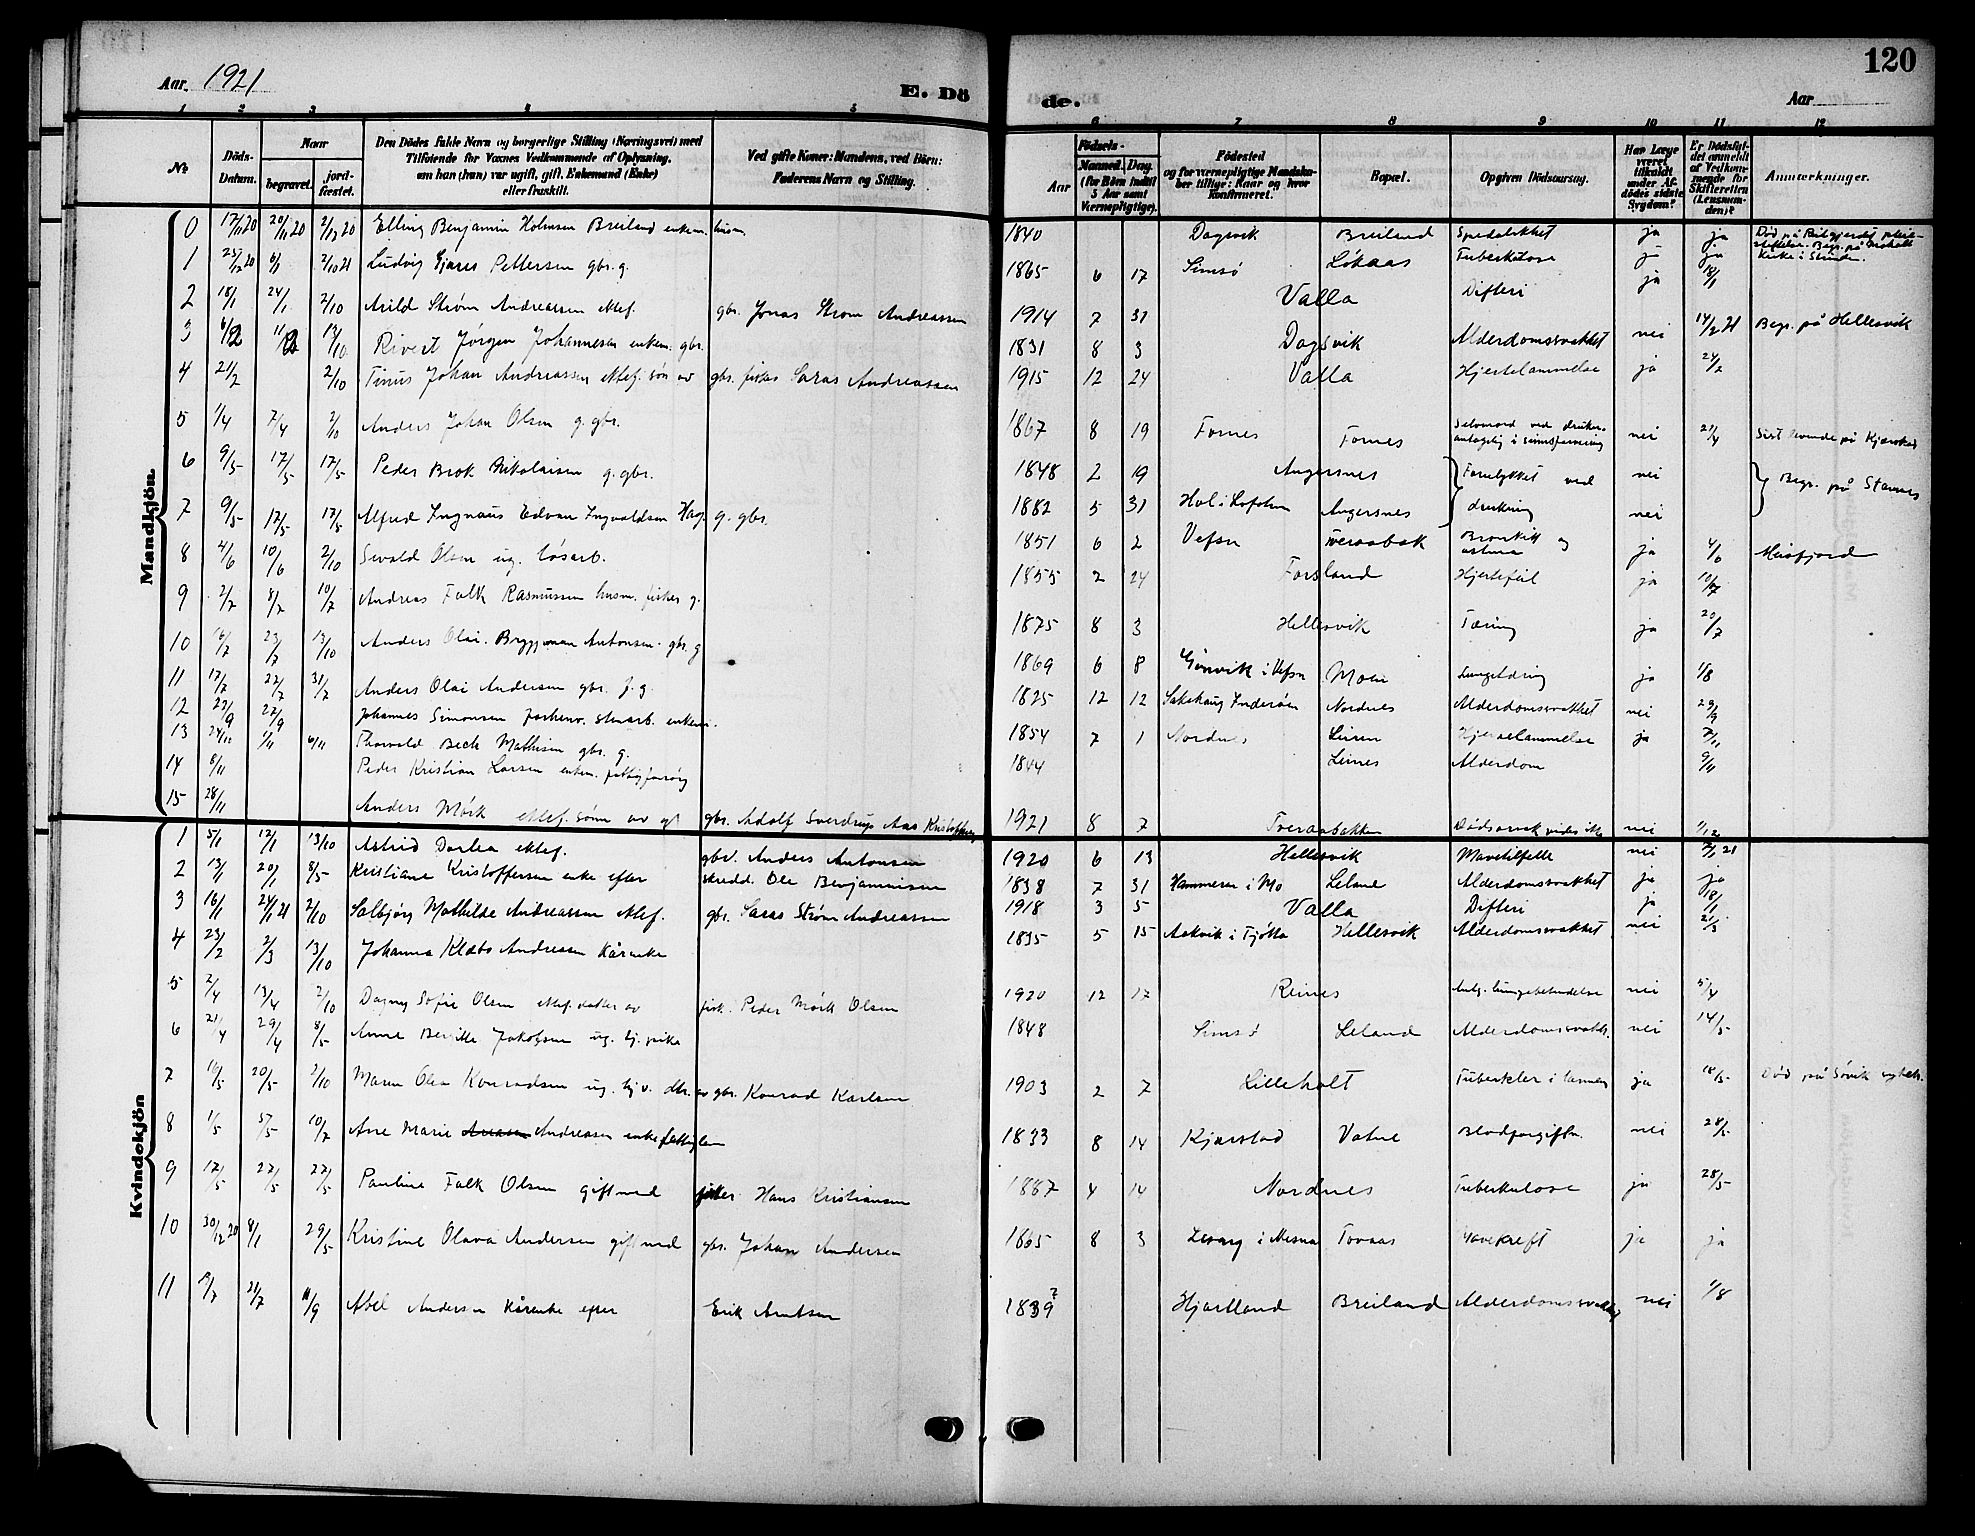 120
Aar. 1921
E. Dö
de.
Aar
1 2 3 4 5
6 7 8 9 10 11 12
No
Döds-Datum.
Naar
begravet.
jord-festet.
Den Dödes fulde Navn og borgerlige Stilling (Næringsvei) med
Tilföiende for Voxnes Vedkommende af Oplysning,
om han (hun) var ugift, gift, Enkemand (Enke)
eller fraskilt.
Ved gifte Koner: Mandens, ved Börn:
Faderens Navn og Stilling.
Födsels-
Aar
Maaned. Dag.
(for Börn indtil
5 Aar samt
Værnepligtige).
Födested
og for værnepligtige Mandskaber tillige: Naar og hvor
konfirmeret.
Bopæl.
Opgiven Dödsaarsag.
Har Læge
været
tilkaldt
under Afdödes sidste
Sygdom?
Er Dödsfaldet anmeldt
af Vedkommende for
Skifteretten
(Lensmanden)?
Anmærkninger.
Mandkjön.
0 17/11 20 20/11 20 2/12 20 Elling Benjamin Holmsen Breiland enkem. husm. 1840 Dagsvik Breiland Spedalskhet ja ja Død på Reitgjerdet pleiestiftelse. Begr. på
1 25/12 20 6/1 2/10 21 Ludvig Pettersen gbr. g. 1865 6 17 Simsø Løkaas Tuberkulose ja ja
2 18/1 24/1 2/10 Arild Strøm Andreassen ektef. gbr. Jonas Strøm Andreassen 1914 7 31 Valla Difteri ja 18/1
3 6/2 11/2 13/10 Rivert Jørgen Johannesen enkem. gbr. 1831 8 3 Dagsvik Alderdomssvakhet nei 14/2 21 Begr. på Hellesvik
4 21/2 2/10 Tinus Johan Andreassen ektef. søn av gbr. fisker Saras Andreassen 1915 12 24 Valla Hjertelammelse ja 24/2
5 1/4 7/4 2/10 Anders Johan Olsen g. gbr. 1867 8 19 Fornes Fornes Selvmord ved drukn. antagelig i nei 21/4 Sist levende på
6 9/5 17/5 17/5 Peder Brok Nikolaisen g. gbr. 1848 2 19 Angersnes Forulykket ved nei Begr. på Stamnes
7 9/5 17/5 17/5 Alfred Edvin Ingvaldsen Hag g. gbr. 1882 5 31 Hol i Lofoten Angersnes drukning nei
8 4/6 10/6 2/10 Sevald Olsen ug. løsarb. 1851 6 2 Vefsn Bronkitt og astma ja 4/6
9 2/7 8/7 10/7 Andreas Falk Rasmussen husm. fisker g. 1855 2 24 Forsland Hjertefeil ja 10/7
10 16/7 23/7 13/10 Anders Olai Bryggman Antonsen gbr. g 1875 8 3 Hellesvik Tæring ja 20/7
11 17/7 22/7 31/7 Anders Olai Andersen gbr. f. g. 1869 6 8 i Vefsn Moen ja 1/8
12 22/9 27/9 Johannes Simonsen enkem. 1825 12 12 Sakshaug Inderøen Nordnes Alderdomssvakhet nei 29/9
13 1/11 6/11 Thorvald Bech Mathisen gbr. g. 1854 7 1 Nordnes Hjertelammelse ja 7/11
14 8/11 Peder Kristian Larsen enkem. fattigforsørg 1844 Leines Alderdom 9/11
15 28/11 Anders Mørk ektef. sønn av gbr. Adolf Sverdrup Aas Kristoffersen 1921 8 7 Tveraabakken nei 1/12
Kvindekjön
1 5/1 12/1 13/10 Astrid Dorlea ektef. gbr. Anders Antonsen 1920 6 13 Hellesvik Mavetilfelle nei 7/1 21
2 13/1 20/1 8/5 Kristiane Kristoffersen enke efter skredd. Ole Benjaminsen 1838 7 31 Hammeren i Mo Leland Alderdomssvakhet ja ja
3 16/1 24/1 21 2/10 Solbjørg Mathilde Andreassen ektef. gbr. Saras Strøm Andreassen 1918 3 5 Valla Difteri ja 18/1
4 23/2 2/3 13/10 Johanna Klæbo Andreassen kårenke 1835 5 15 Aakvik i Tjøtta Hellesvik Alderdomssvakhet nei 21/3
5 2/4 13/4 2/10 Dagny Sofie Olsen ektef. datter av fisk. Peder Mørk Olsen 1920 12 17 Reines Antg. lungebetendelse nei 5/4
6 21/4 29/4 8/5 Anne Beritte Jakobsen ug. tj. pike 1848 Simsø Leland Alderdomssvakh. nei 14/5
7 16/5 20/5 2/10 Maren Olea Konradsen ug. dtr. av gbr. Konrad Karlsen 1903 2 7 Lilleholt Tuberkler i ja 18/5 Død på Søvik sykeh.
8 1/5 5/5 10/7 Ane Marie Andreassen enke fattiglem 1833 8 14 Kjærstad Vatne Blodforgiftn. nei 28/5
9 17/5 27/5 27/5 Pauline Falk Olsen gift med fisker Hans Kristiansen 1887 4 14 Nordnes Tuberkulose ja 28/5
10 30/12 20 8/1 29/5 Kristine Olava Andersen gift med gbr. Johan Andersen 1865 8 3 i Nesna Tovaas Mavekreft ja ja
11 19/7 21/7 11/9 Abel Andersen kårenke efter Erik Arntsen 1839 ? Hjartland Breiland Alderdomssvakhet nei 1/8